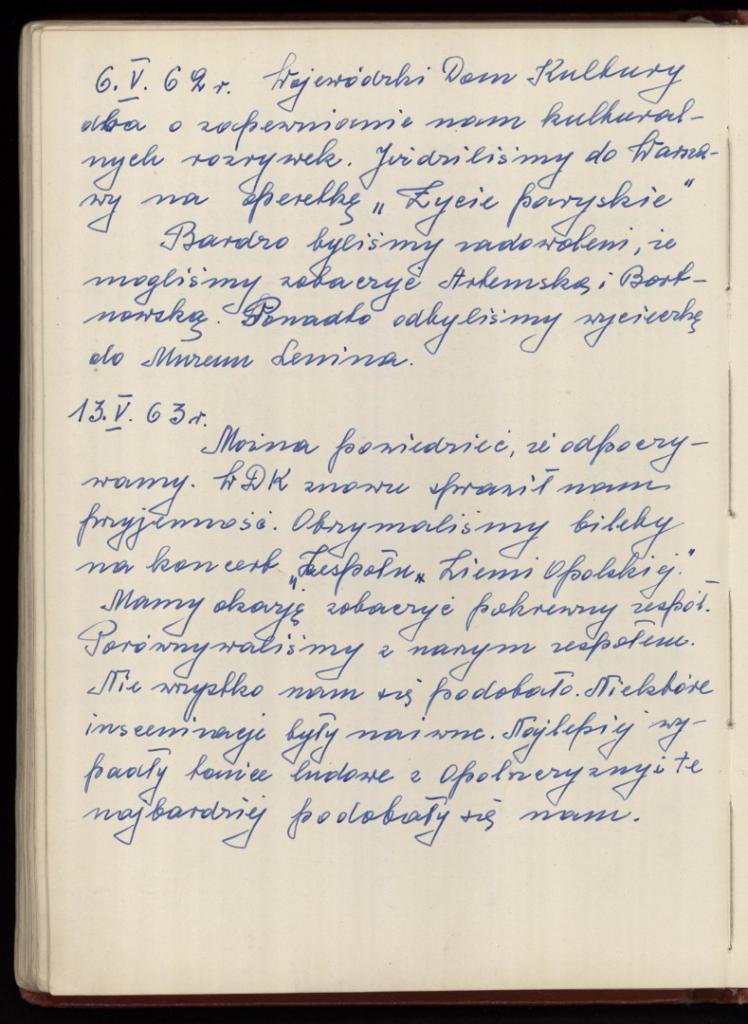 6.V.62 r. Wojewódzki Dom Kultury
dba o zapewnianie nam kultural-
nych rozrywek. Jeździliśmy do Warsza-
wy na operetkę „Życie paryskie"
Bardzo byliśmy zadowoleni, że
mogliśmy zobaczyć Artemską i Bort-
nowską. Ponadto odbyliśmy wycieczkę
do Muzeum Lenina.
13.V.63 r.
Można powiedzieć, że odpoczy-
wamy. WDK znowu sprawił nam
przyjemność. Otrzymaliśmy bilety
na koncert „Zespołu „Ziemi Opolskiej."
Mamy okazję zobaczyć pokrewny zespół.
Porównywaliśmy z naszym zespołem.
Nie wszystko nam się podobało. Niektóre
insceninacje były naiwne. Najlepiej wy-
padły tańce ludowe z Opolszczyzny i te
najbardziej podobały się nam.